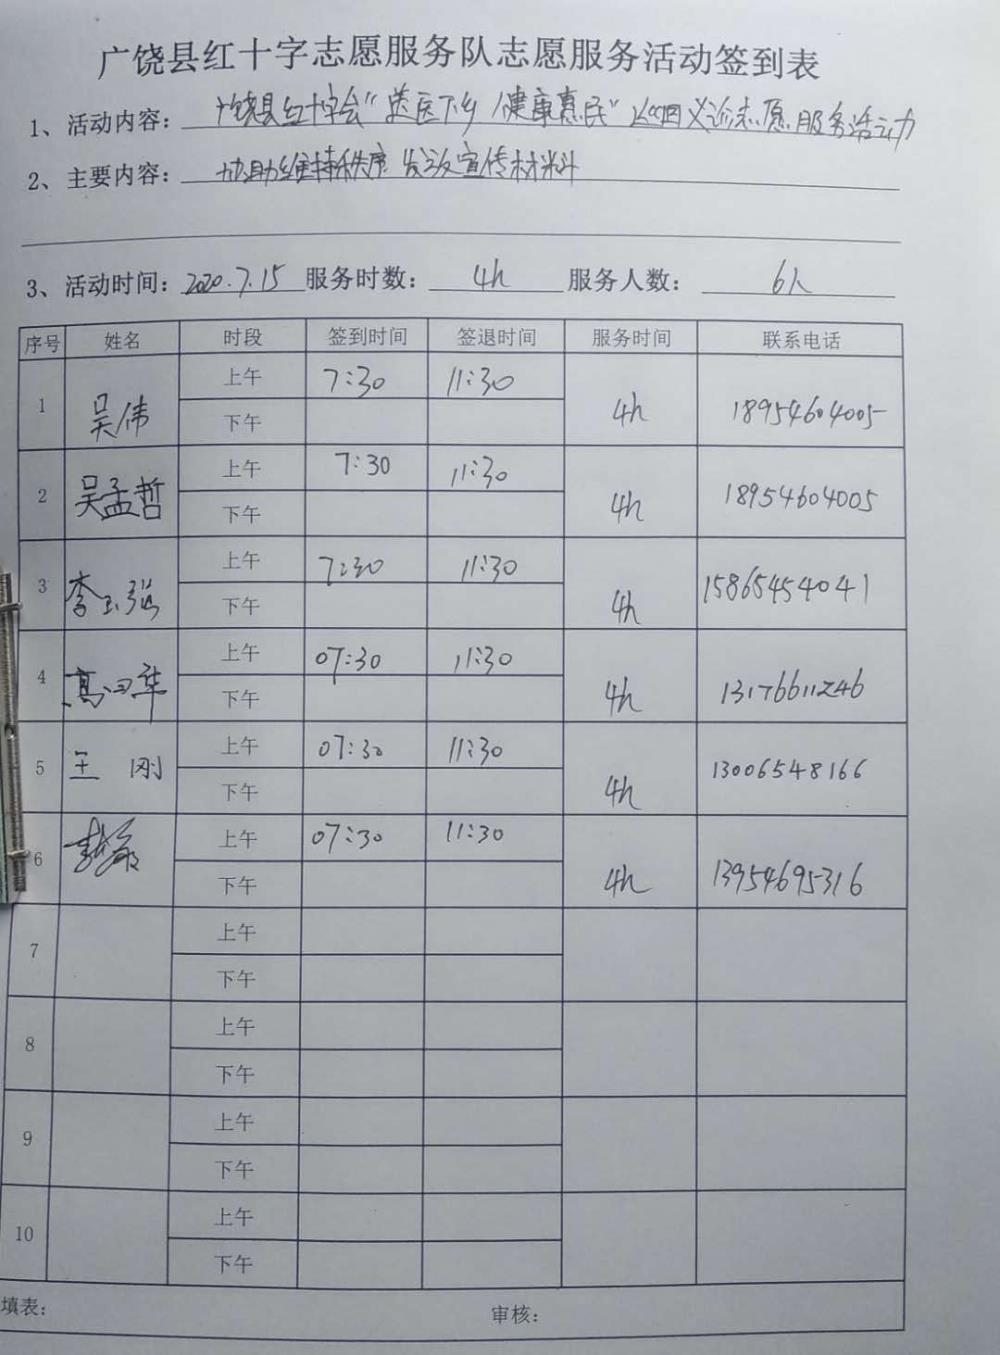 广饶县红十字志愿服务队志愿服务活动签到表
1、活动内容：广饶县红十字会“送医下乡 健康惠民”巡回义诊志愿服务活动
2、主要内容：协助维持秩序 发放宣传材料
3、活动时间：2020.7.15 服务时数：4h 服务人数：6人
序号 姓名 时段 签到时间 签退时间 服务时间 联系电话
1 吴伟 上午 7:30 11:30 4h 18954604005
下午
2 吴孟哲 上午 7:30 11:30 4h 18954604005
下午
3 李玉强 上午 7:30 11:30 4h 15865454041
下午
4 上午 07:30 11:30 4h 13176611246
下午
5 王刚 上午 07:30 11:30 4h 13006548166
下午
6 上午 07:30 11:30 4h 13954695316
下午
7 上午
下午
8 上午
下午
9 上午
下午
10 上午
下午
填表： 审核：